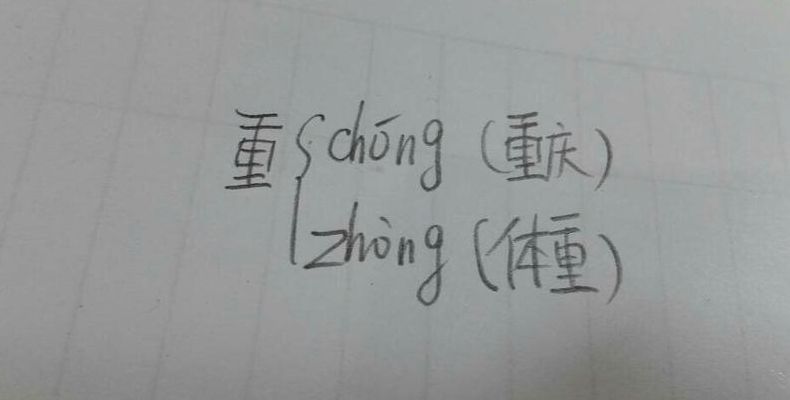 重{chōng（重庆）
zhòng（体重）